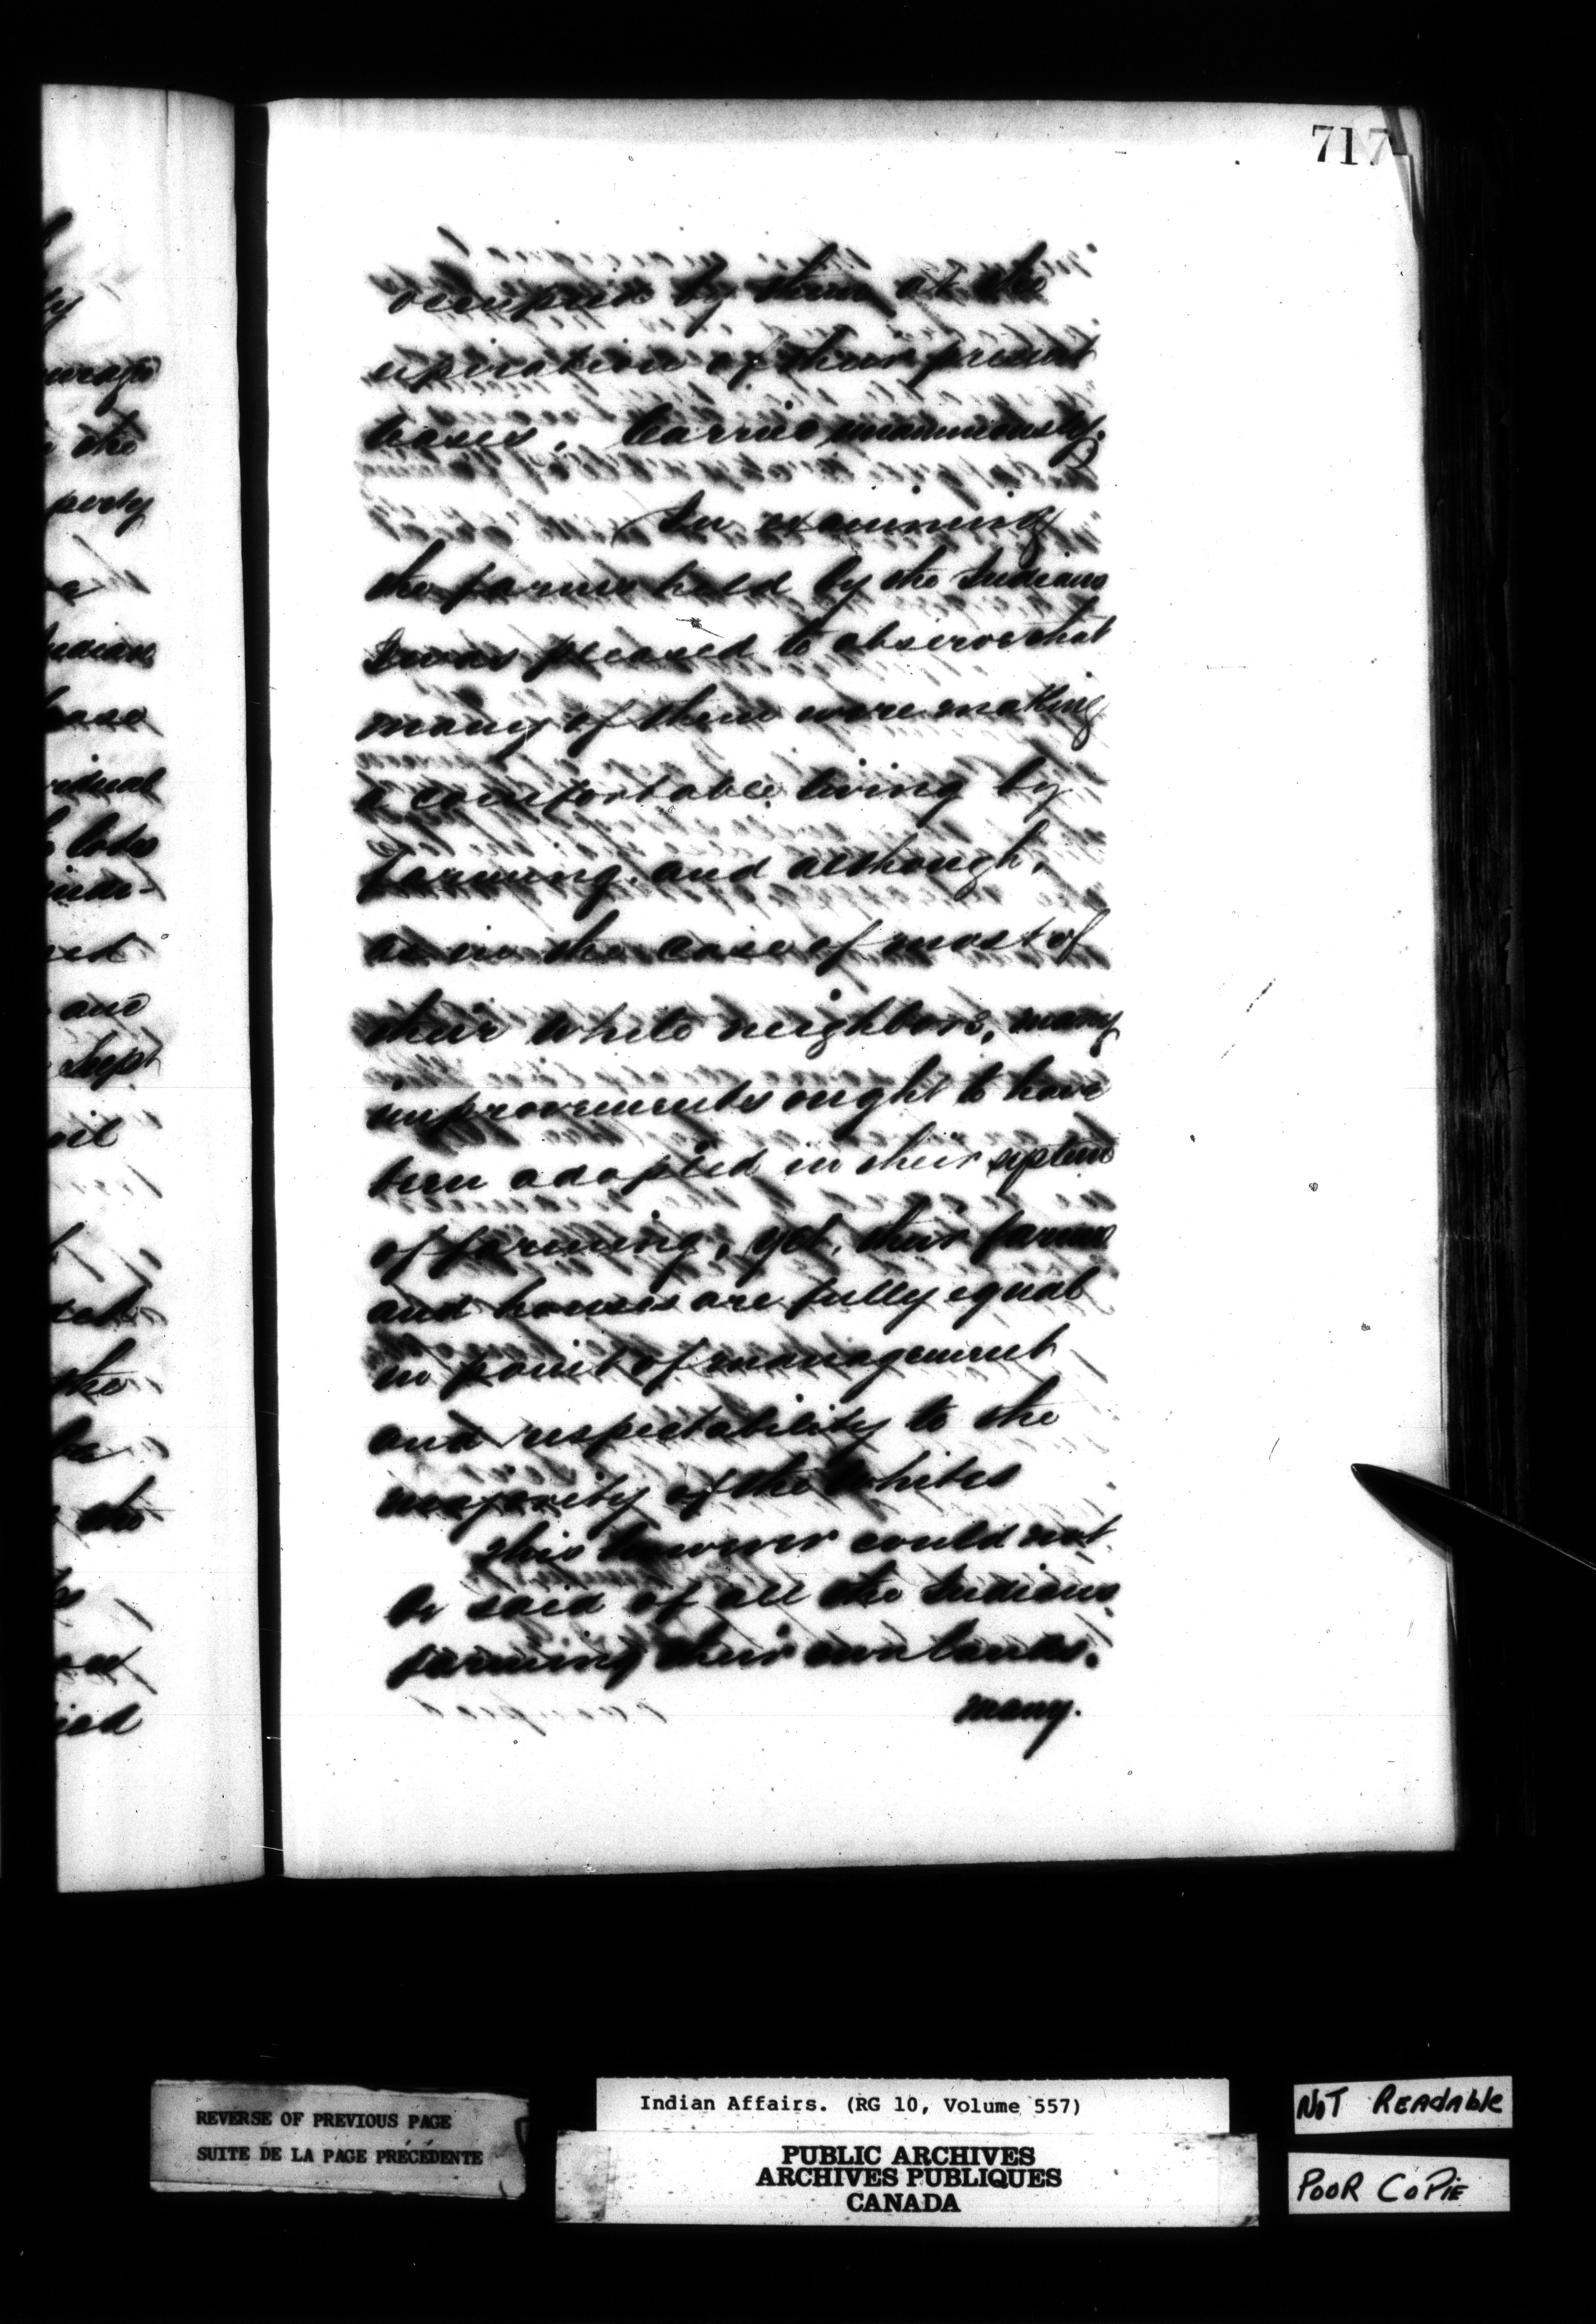 717
occupied by them at the
expiration of their present
leases. Carried unanimously.
In examining
the farms held by the Indians
I was pleased to observe that
many of them were making
a comfortable living by
farming, and although,
as in the case of most of
their white neighbors, many
improvements might to have
been adopted in their system
of farming, yet, their farms
and houses are fully equal
in point of management
and respectability to the
majority of the Whites
This however could not
be said of all the Indians
farming their own lands.
many.
the
and
Sept
the
the
REVERSE OF PREVIOUS PAGE
SUITE DE LA PAGE PRÉCÉDENTE
Indian Affairs. (RG 10, Volume 557)
PUBLIC ARCHIVES
ARCHIVES PUBLIQUES
CANADA
NOT READABLE
POOR COPIE